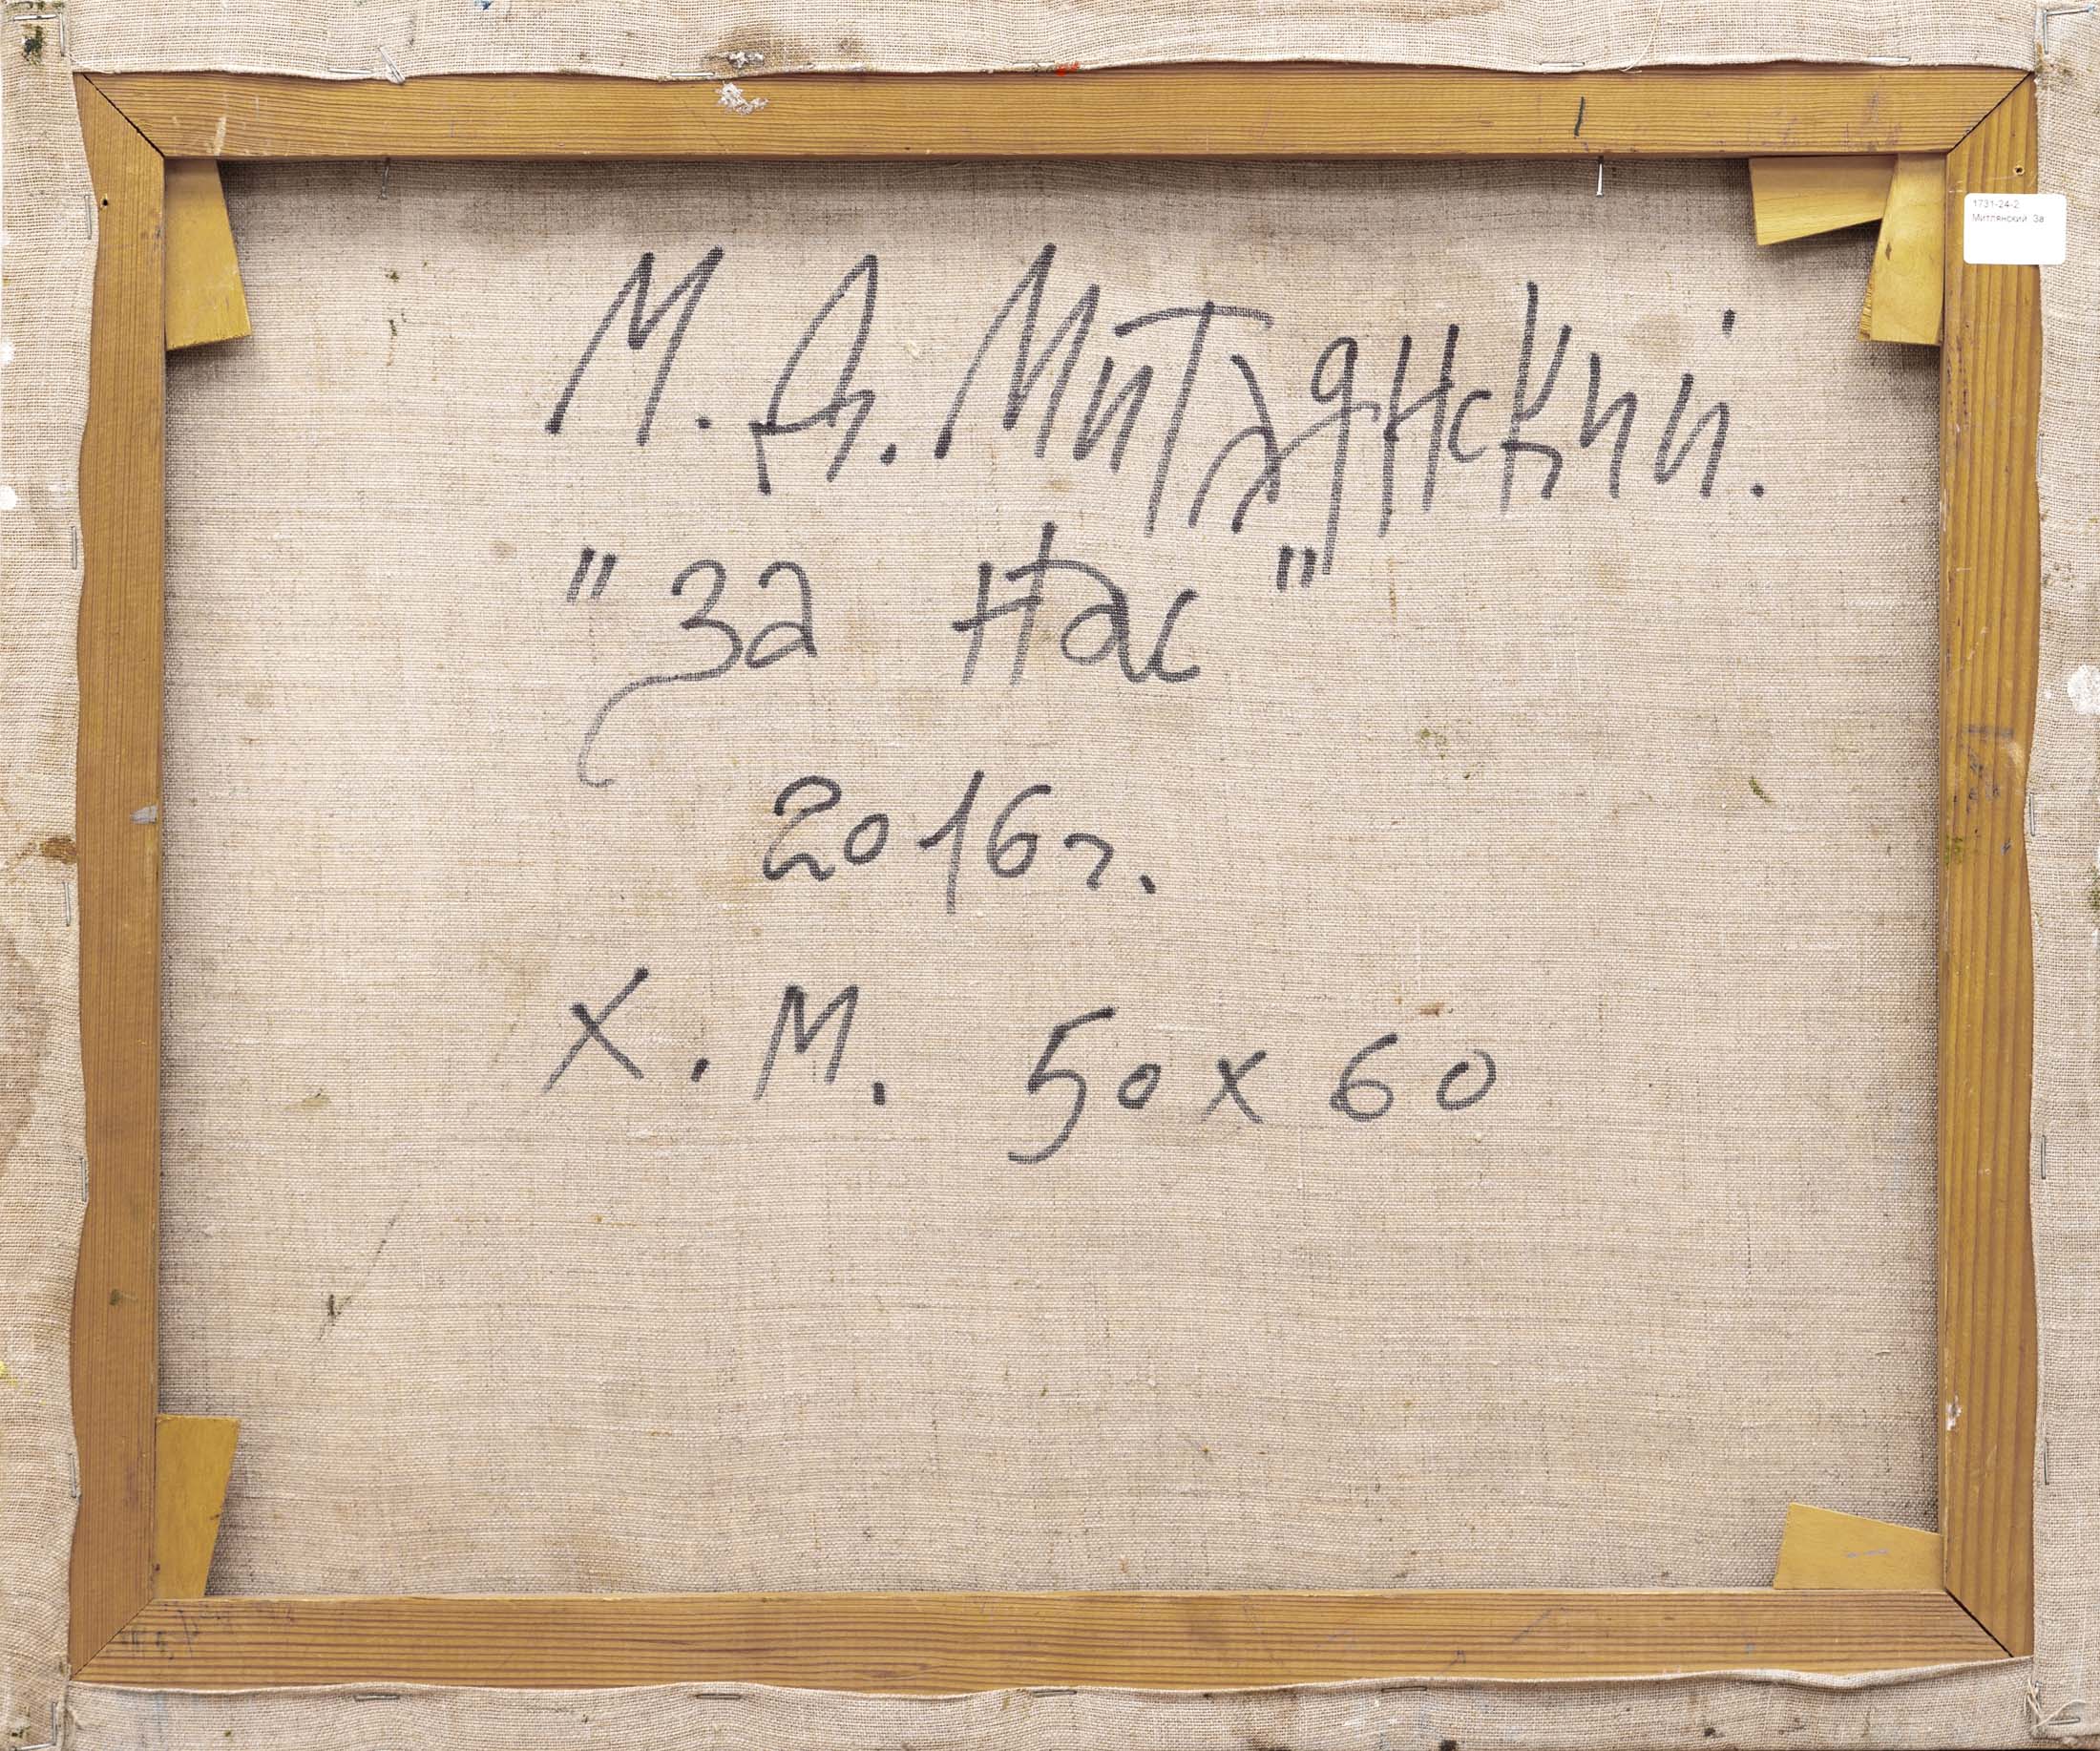 М. Д. Митлянский.
"За Нас"
2016г.
Х. М. 50 х 60
1731-24-2
Митлянский За